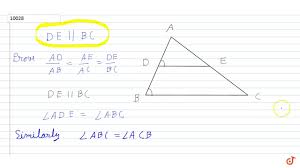 10028
DE || BC
Prove AD/AB = AE/AC = DE/BC
DE || BC
∠ADE = ∠ABC
Similarly ∠ABC = ∠ACB
A
D
E
B
C